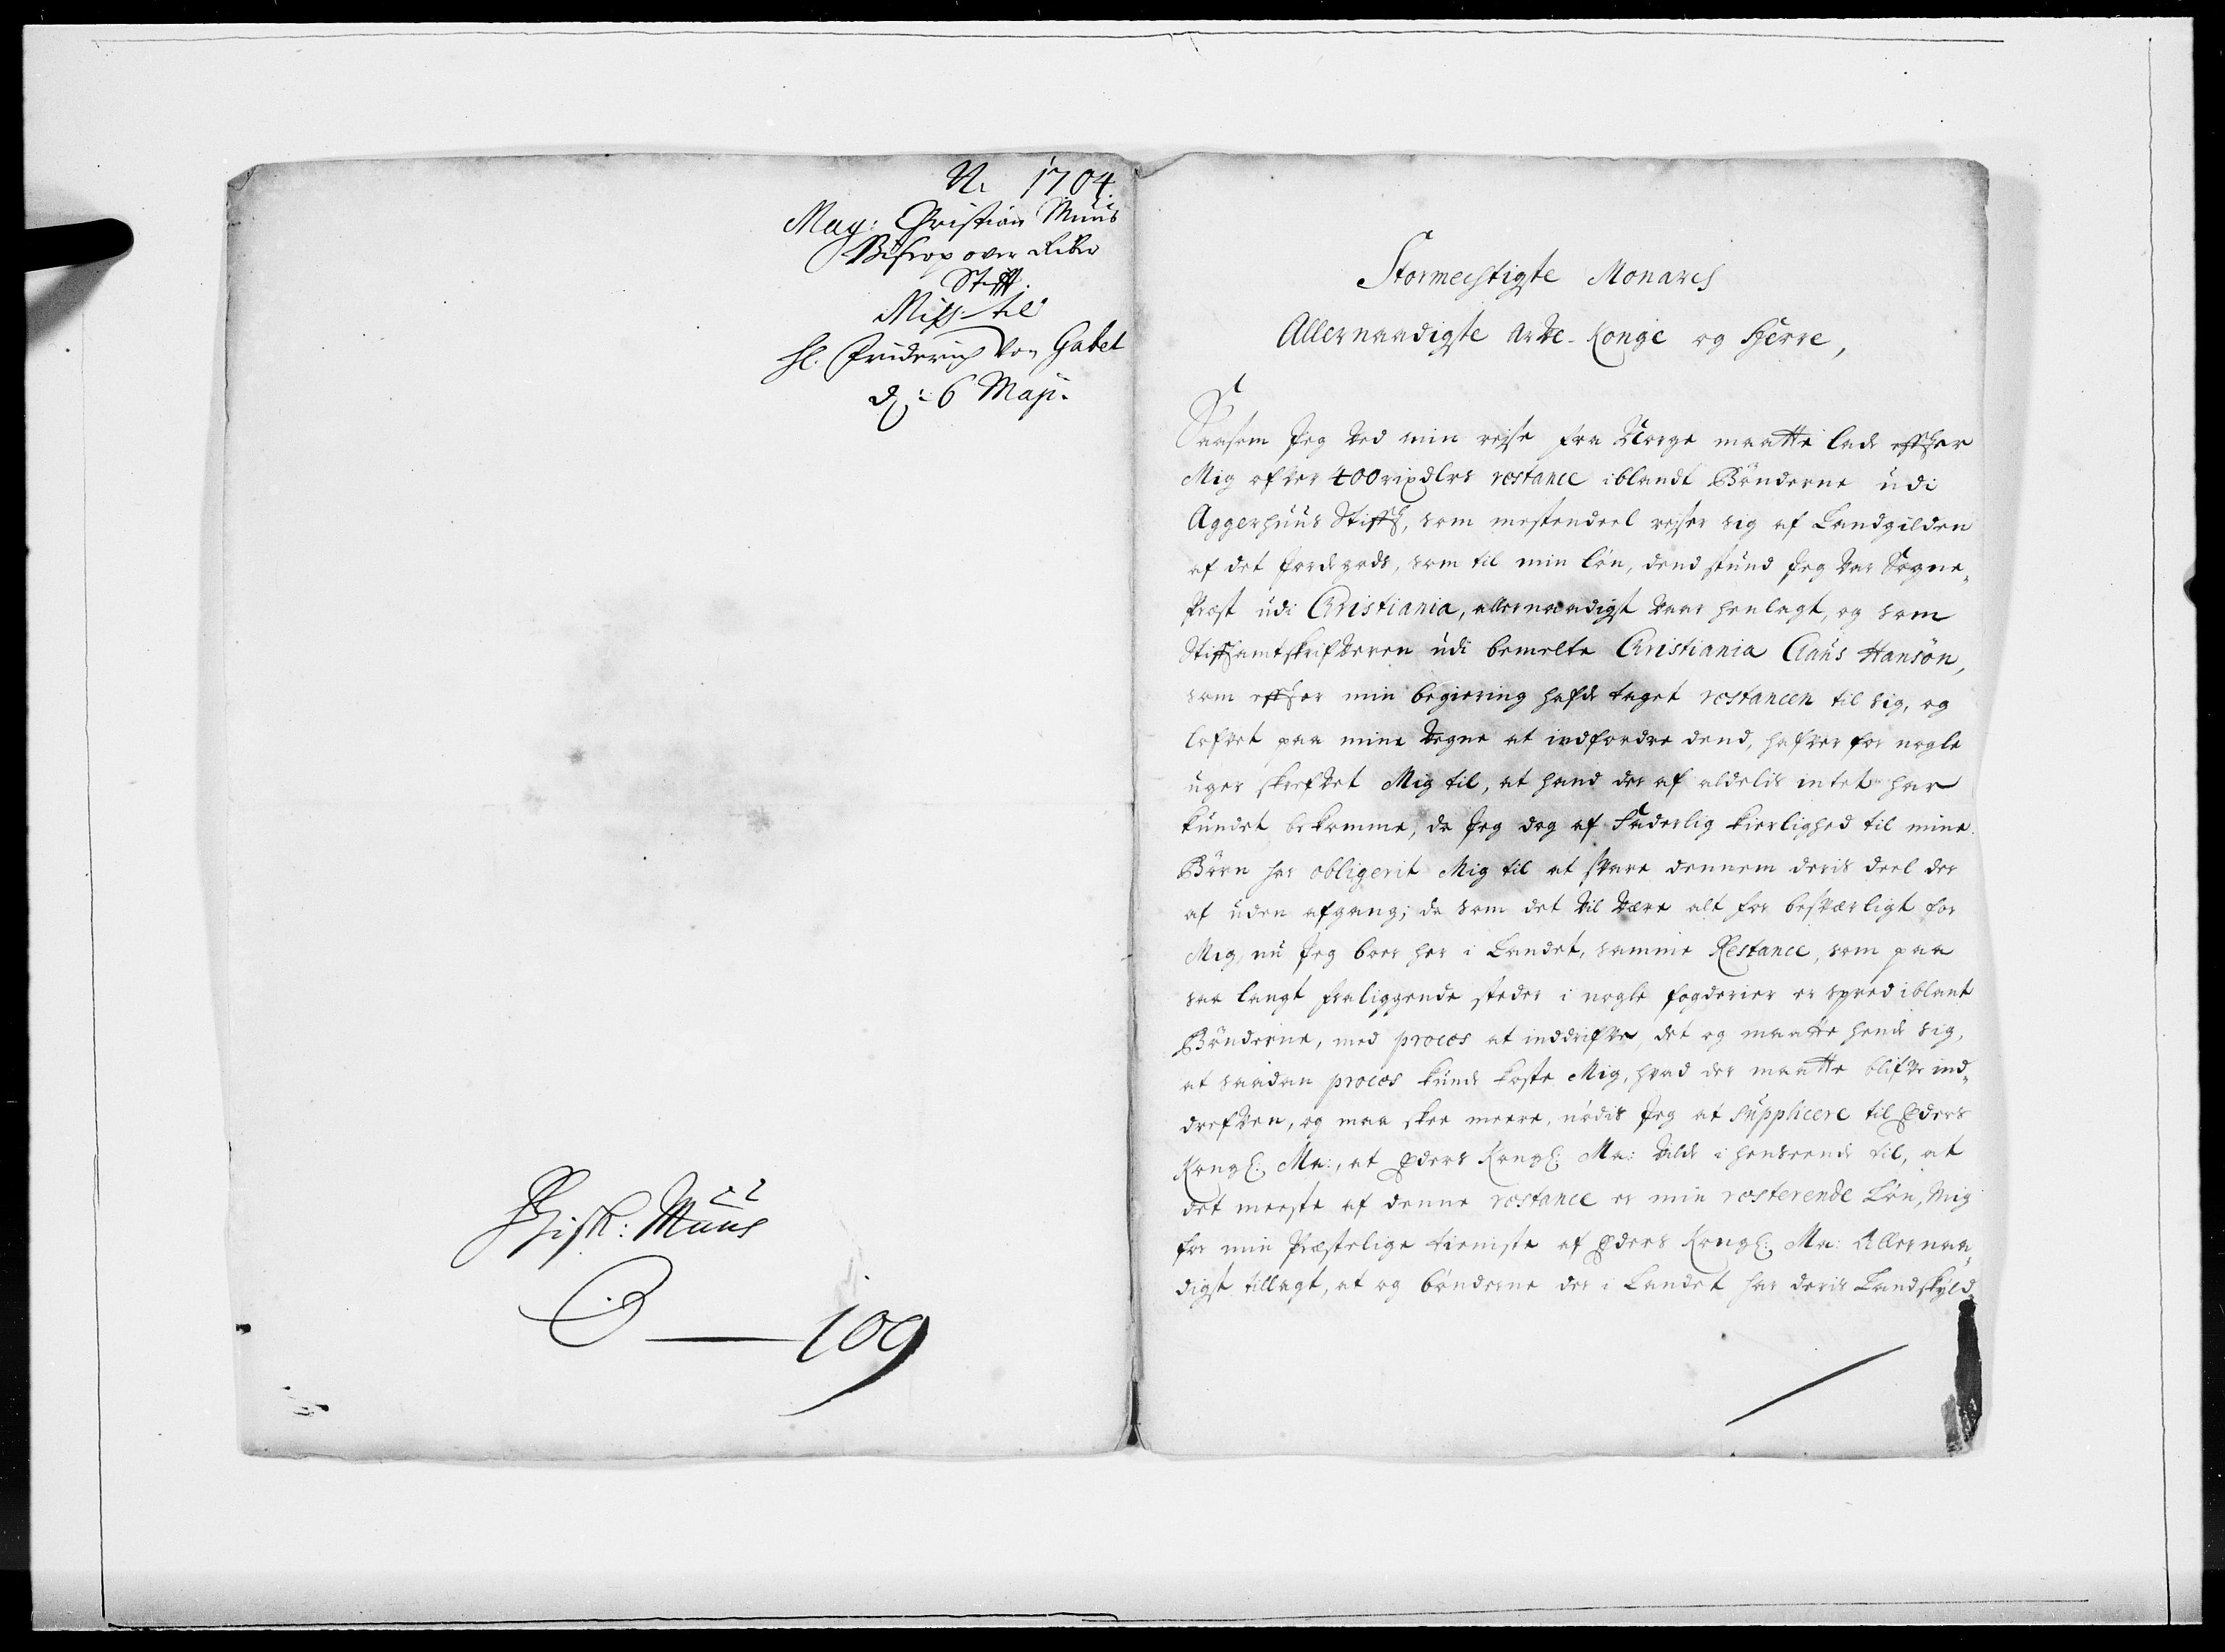 A: 1704.
Mag: Christian Muus
Biscop over Riber
Stifft.
Miss: til
Hl. Friderich von Gabel
d: 6 Maji.
Bisk: Muus
109
Stormechtigste Monarch
Allernaadigste Arve-Konge og Herre,
Saasom Jeg ved min rejse fra Norge maatte lade effter
Mig ofver 400 rixdlrs restance iblandt Bönderne udi
Aggershuus Stifft, som mestendeel rejser sig af Landgilden
af det Jordegods, som til min lön, dend stund Jeg var Sogne-
Præst udi Christiania, allernaadigst vaar henlagt, og som
Stifftamtskrifveren udi bemelte Christiania Claus Hansön,
som effter min begiering hafde taget restancen til sig, og
lofvet paa mine vegne at indfordre dend, hafver for nogle
uger skrefvet Mig til, at hand der af aldelis intet har
kundet bekomme, da Jeg dog af Faderlig kierlighed til mine
Börn har obligerit Mig til at svare dennem deris deel der
af uden afgang; da som det vil være alt for besværligt for
Mig, nu Jeg boer her i Landet, samme Restance, som paa
saa langt fraliggende steder i nogle fogderier er spred iblant
Bönderne, med proces at inddrifve, det og maatte hende sig,
at saadan proces kunde koste Mig, hvad der maatte blifve ind-
drefven, og maa skee meere, nödis Jeg at supplicere til Eders
Kongl: Ma:, at Eders Kongl: Ma: vilde i henseende til, at
det meeste af denne restance er min resterende Lön, Mig
for min Præstelige tieniste af Eders Kongl: Ma: Allernaa-
digst tillagt, at og bönderne der i Landet har deris Landskyld